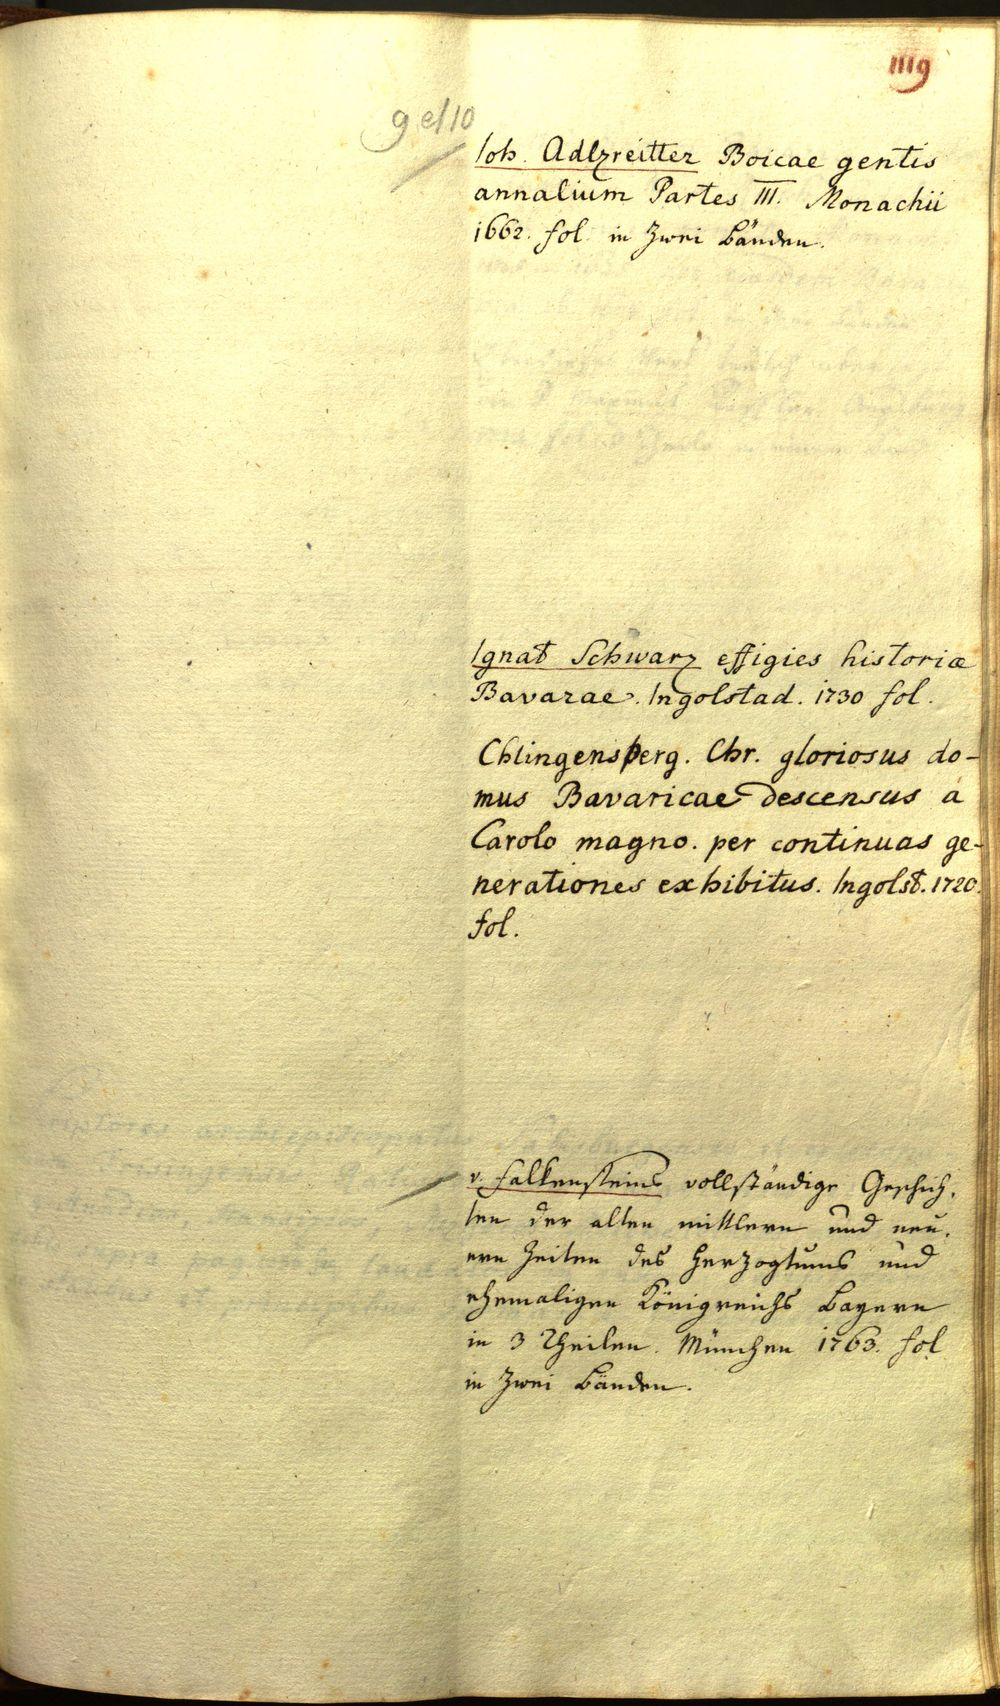 1119
9 et 10
Ioh. Adlzreitter Boicae gentis
annalium Partes III. Monachii
1662. fol. in zwei Bänden.
Ignat Schwarz effigies historiæ
Bavarae. Ingolstad. 1730 fol.
Chlingensperg. Chr. gloriosus do-
mus Bavaricae descensus a
Carolo magno. per continuas ge-
nerationes exhibitus. Ingolst. 1720.
fol.
v. Falkensteins vollständige Geschich-
ten der alten mittlern und neu-
ern Zeiten des Herzogtums und
ehemaligen Königreichs Bayern
in 3 Theilen. München 1763. fol
in zwei Bänden.